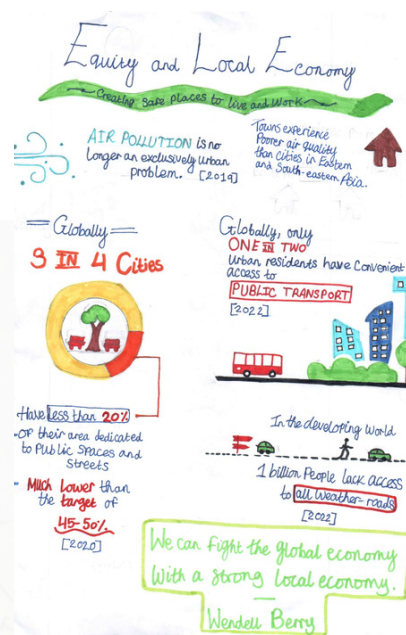 Equity and Local Economy
Creating safe places to live and work
AIR POLLUTION is no
longer an exclusively urban
problem. [2019]
Towns experience
Poorer air quality
than cities in Eastern
and South-eastern Asia.
Globally
3 IN 4 Cities
Have less than 20%
of their area dedicated
to Public Spaces and
Streets
Much Lower than
the target of
45-50%.
[2020]
Globally, only
ONE IN TWO
Urban residents have Convenient
access to
PUBLIC TRANSPORT
[2022]
In the developing World
1 billion People lack access
to all weather-roads
[2022]
We can fight the global economy
With a strong local economy.
—
Wendell Berry